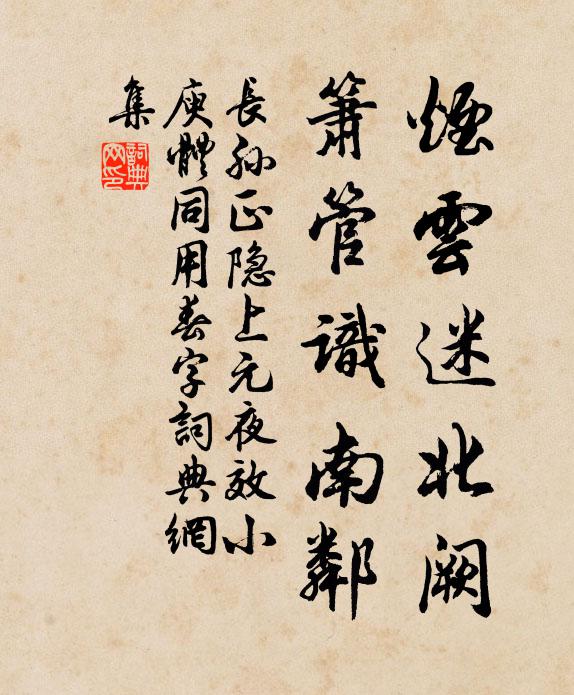 煙雲迷北阙
簫管識南鄰
長孙正隐上元夜效小
庾體同用春字詞典網
集
詞典网印